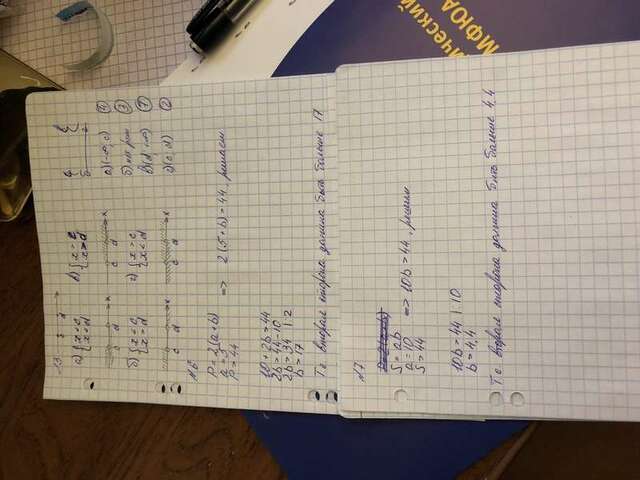 ический
МФЮА
N3
c d
а) {x<c
{x<d
c d x
в) {x>c
{x>d
c d x
б) {x<c
{x>d
c d x
г) {x>c
{x<d
c d x
а
б
в
г
а) (-∞; c) ④
б) нет реш ③
в) (d; +∞) ①
г) (c; d) ②
N6
P=2(a+b)
a=5
P=44
=> 2(5+b)=44, решаем
10+2b=44
2b=44-10
2b=34 |:2
b=17
Т.е. вторая сторона должна быть больше 17
N7
S=ab
a=10
S=44
=> 10b=44, решаем
10b=44 |:10
b=4,4
Т.е. вторая сторона должна быть больше 4,4